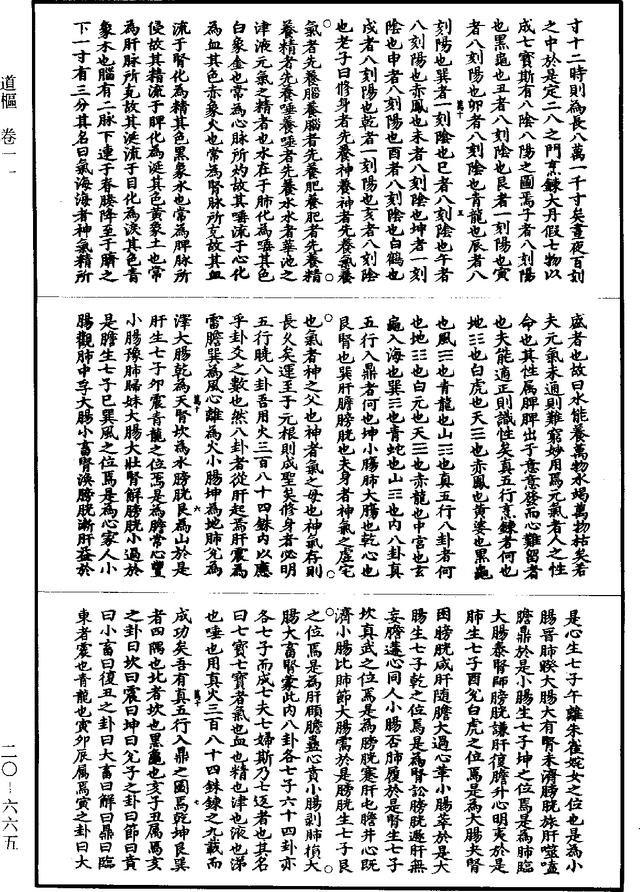 道樞 卷一一
寸十二時則為長八萬一千寸矣晝夜百刻
之中於是定二八之門烹鍊大丹假七物以
成七寶斯有八陰八陽之圖焉子者八刻陽
也黑龜也丑者八刻陰也艮者一刻陽也寅
者八刻陽也卯者八刻陰也青龍也辰者八
刻陽也巽者一刻陰也巳者八刻陰也午者
八刻陽也赤鳳也未者八刻陰也坤者一刻
陰也申者八刻陽也酉者八刻陰也白鶴也
戌者八刻陽也乾者一刻陽也亥者八刻陰
也老子曰修身者先養神養神者先養氣養
氣者先養腦養腦者先養肥養肥者先養精
養精者先養唾養唾者先養水水者華池之
津液元氣之精者也水在于肺化為唾其色
白象金也常為心脉所灼故其唾流于心化
為血其色赤象火也常為腎脉所克故其血
流于腎化為精其色黑象水也常為脾脉所
侵故其精流于脾化為涎其色黃象土也常
為肝脉所克故其涎流于目化為淚其色青
象木也腦有二脉下連于脊膝降至于臍之
下一寸有三分其名曰氣海海者神氣精所
盛者也故曰水能養萬物水竭萬物枯矣若
夫元氣未通則難窮妙用焉元氣者人之性
命也其性属脾脾出于意意發而心離留者
也夫能適正則識性矣真五行烹鍊者何也
地☷也白虎也天☰也赤鳳也黃婆也黑龜
也風☴也青龍也山☶也真五行八卦者何
也地☷也白元也天☰也赤龍也中宮也玄
龜入海也巽☴也青蛇也山☶也内八卦真
五行入鼎者何也坤小腸肺大腸也乾心也
艮腎也巽肝膽膀胱也夫身者神氣之虛宅
也氣者神之父也神者氣之母也神氣存則
長久矣運至于元根則成聖矣修身者必明
五行曉八卦吾用火三百八十四銖内以應
乎卦爻之數也然八卦者從肝起焉肝震為
雷膽巽為風心離為火小腸坤為地肺兌為
澤大腸乾為天腎坎為水膀胱艮為山於是
肝生七子卯震青龍之位焉是為膽常心豐
小腸豫肺歸妹大腸大壯腎解膀胱小過於
是膽生七子巳巽風之位焉是為心家人小
腸觀肺中孚大腸小畜腎渙膀胱漸肝益於
是心生七子午離朱雀姹女之位也是為小
腸晋肺睽大腸大有腎未濟膀胱旅肝噬嗑
膽鼎於是小腸生七子坤之位焉是為肺臨
大腸泰腎師膀胱謙肝復膽升心明夷於是
肺生七子酉兌白虎之位焉是為大腸夬腎
困膀胱咸肝随膽大過心革小腸萃於是大
腸生七子乾之位焉是為腎訟膀胱遯肝無
妄膽遘心同人小腸否肺履於是腎生七子
坎真武之位焉是為膀胱蹇肝屯膽井心既
濟小腸比肺節大腸需於是膀胱生七子艮
之位焉是為肝頤膽蠱心賁小腸剥肺損大
腸大畜腎蒙此内八卦各七子六十四卦亦
各七子而成七夫七婦斯乃七返者也其名
曰七寶七寶者氣也血也精也津也液也涕
也唾也用真火三百八十四銖鍊之九載而
成功矣吾有真五行入鼎之圖焉乾坤艮巽
者四隅也北者坎也黑龜也亥子丑属焉亥
之卦曰坎曰震曰坤曰兌子之卦曰節曰賁
曰小畜曰復丑之卦曰大畜曰解曰鼎曰臨
東者震也青龍也寅卯辰属焉寅之卦曰大
二〇-六六五